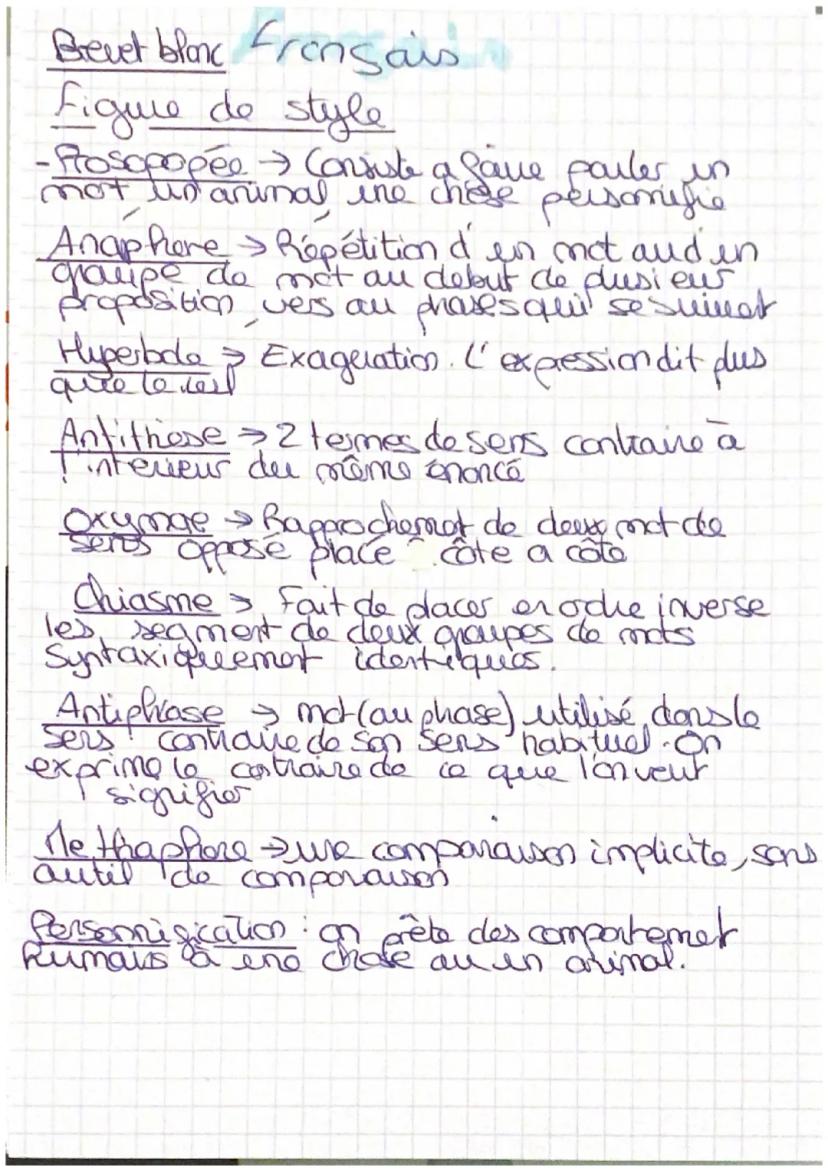 Brevet blanc Français
Figure de style
- Prosopopée → Consiste a faire parler un
mot un animal une chose personnifie
Anaphore → Répétition d'un mot au d'un
groupe de mot au debut de plusieur
proposition, vers ou phases qui se suivent
Hyperbole → Exageration. L'expression dit plus
que le reel
Antithèse → 2 termes de sens contraire à
l'interieur du même énoncé
Oxymore → Rapprochemet de deux mot de
sens opposé placé côte a côte
Chiasme → Fait de placer en ordre inverse
les segment de deux groupes de mots
Syntaxiquement identiques.
Antiphrase → mot (ou phase) utilisé dans le
sens contraire de son sens habituel. On
exprime le contraire de ce que l'on veut
signifier
Methaphore → une comparaison implicite, sans
outil de comparaison
Personnification : on prête des comportemet
humains à une chose ou un animal.